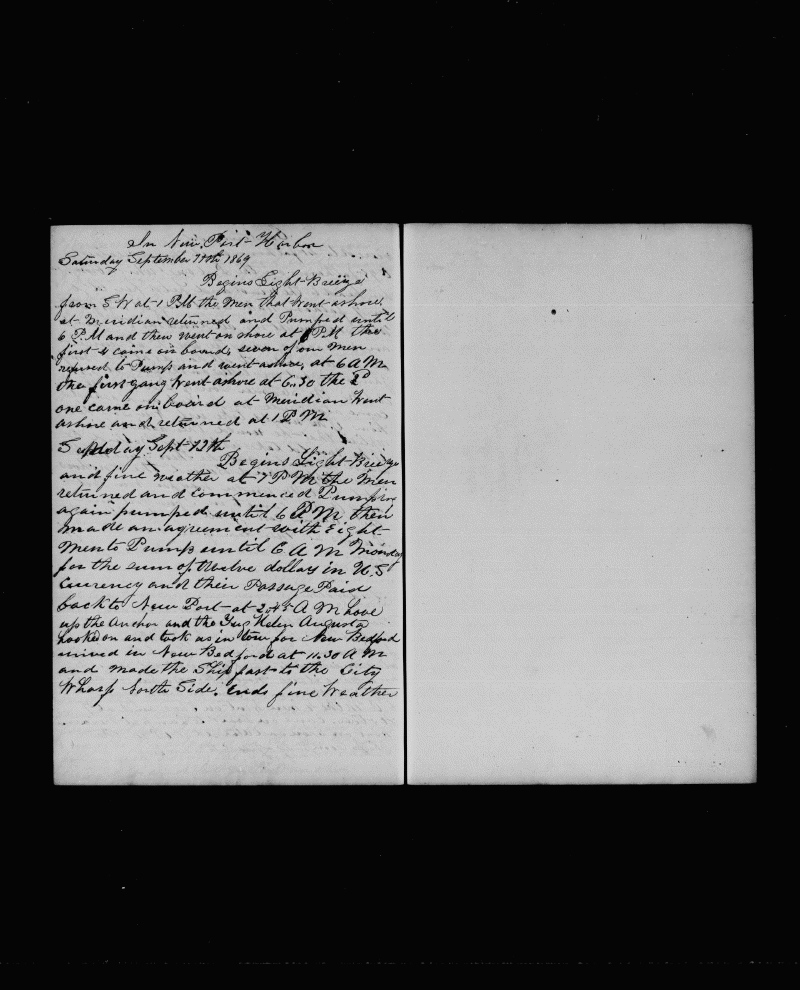 In New Port Harbor
Saturday September 11th 1869
Begins Light Breeze
from S W at 1 PM the Men that went ashore
at Meridian returned and Pumped until
6 P.M and then went on shore at PM the
first 4 came on board, seven of our Men
refused to Pump and went ashore, at 6 A M
the first gang went ashore at 6.30 the 2
one came on board at Meridian went
ashore and returned at 1 P M
Sunday Sept 12th
Begins Light Breeze
and fine weather at 1 P M the Men
returned and commenced Pumping
again pumped until 6 P M then
made an agreement with Eight
Men to Pump until 6 A M Monday
for the sum of twelve dollars in U.S
Currency and their Passage Paid
back to New Port at 2.45 A M hove
up the Anchor and the Tug Helen Augusta
hooked on and took us in tow for New Bedford
arrived in New Bedford at 11.30 A M
and made the Ship fast to the City
Wharf North Side, Ends fine Weather